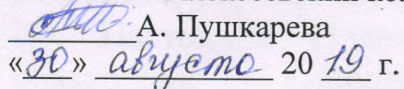 А. Пушкарева
«30» августа 20 19 г.